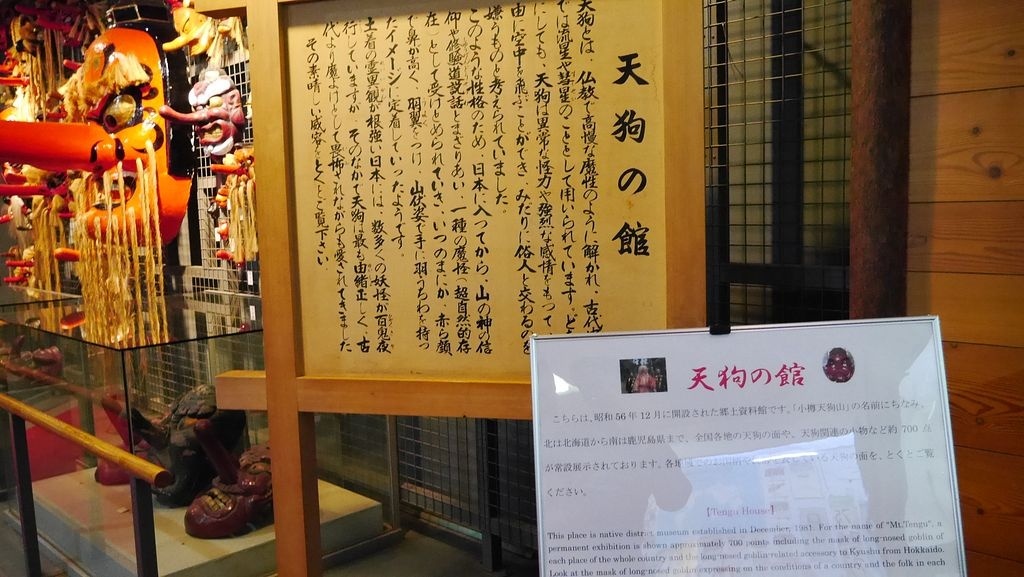 天狗の館
天狗とは、仏教で高慢な魔性のように解かれ、古代
では流星や彗星のこととして用いられています。ど
にしても、天狗は異常な怪力や強烈な感情をもって、
由に空中を飛ぶことができ、みだりに俗人と交わるのを
嫌うものと考えられていました。
このような性格のため、日本に入ってから、山の神の信
仰や修験道説話とまざりあい、一種の魔怪（超自然的存
在）として受けとめられていき、いつのまにか、赤ら顔
で鼻が高く、羽翼をつけ、山伏姿で手に羽うちわを持っ
たイメージに定着していったようです。
土着の霊異観が根強い日本には、数多くの妖怪が百鬼夜
行していますが、そのなかで天狗は最も由緒正しく、古
代より魔よけとして畏怖されながらも愛されてきました
その素晴しい威容をとくとご覧下さい。
天狗の館
こちらは、昭和56年12月に開設された郷土資料館です。「小樽天狗山」の名前にちなみ、
北は北海道から南は鹿児島県まで、全国各地の天狗の面や、天狗関連の小物など約700点
が常設展示されております。各地
いる天狗の面を、とくとご覧
ください。
【Tengu House】
This place is native district museum established in December, 1981. For the name of "Mt.Tengu", a
permanent exhibition is shown approximately 700 points including the mask of long-nosed goblin of
each place of the whole country and the long-nosed goblin-related accessory to Kyushu from Hokkaido.
Look at the mask of long-nosed goblin expressing on the conditions of a country and the folk in each